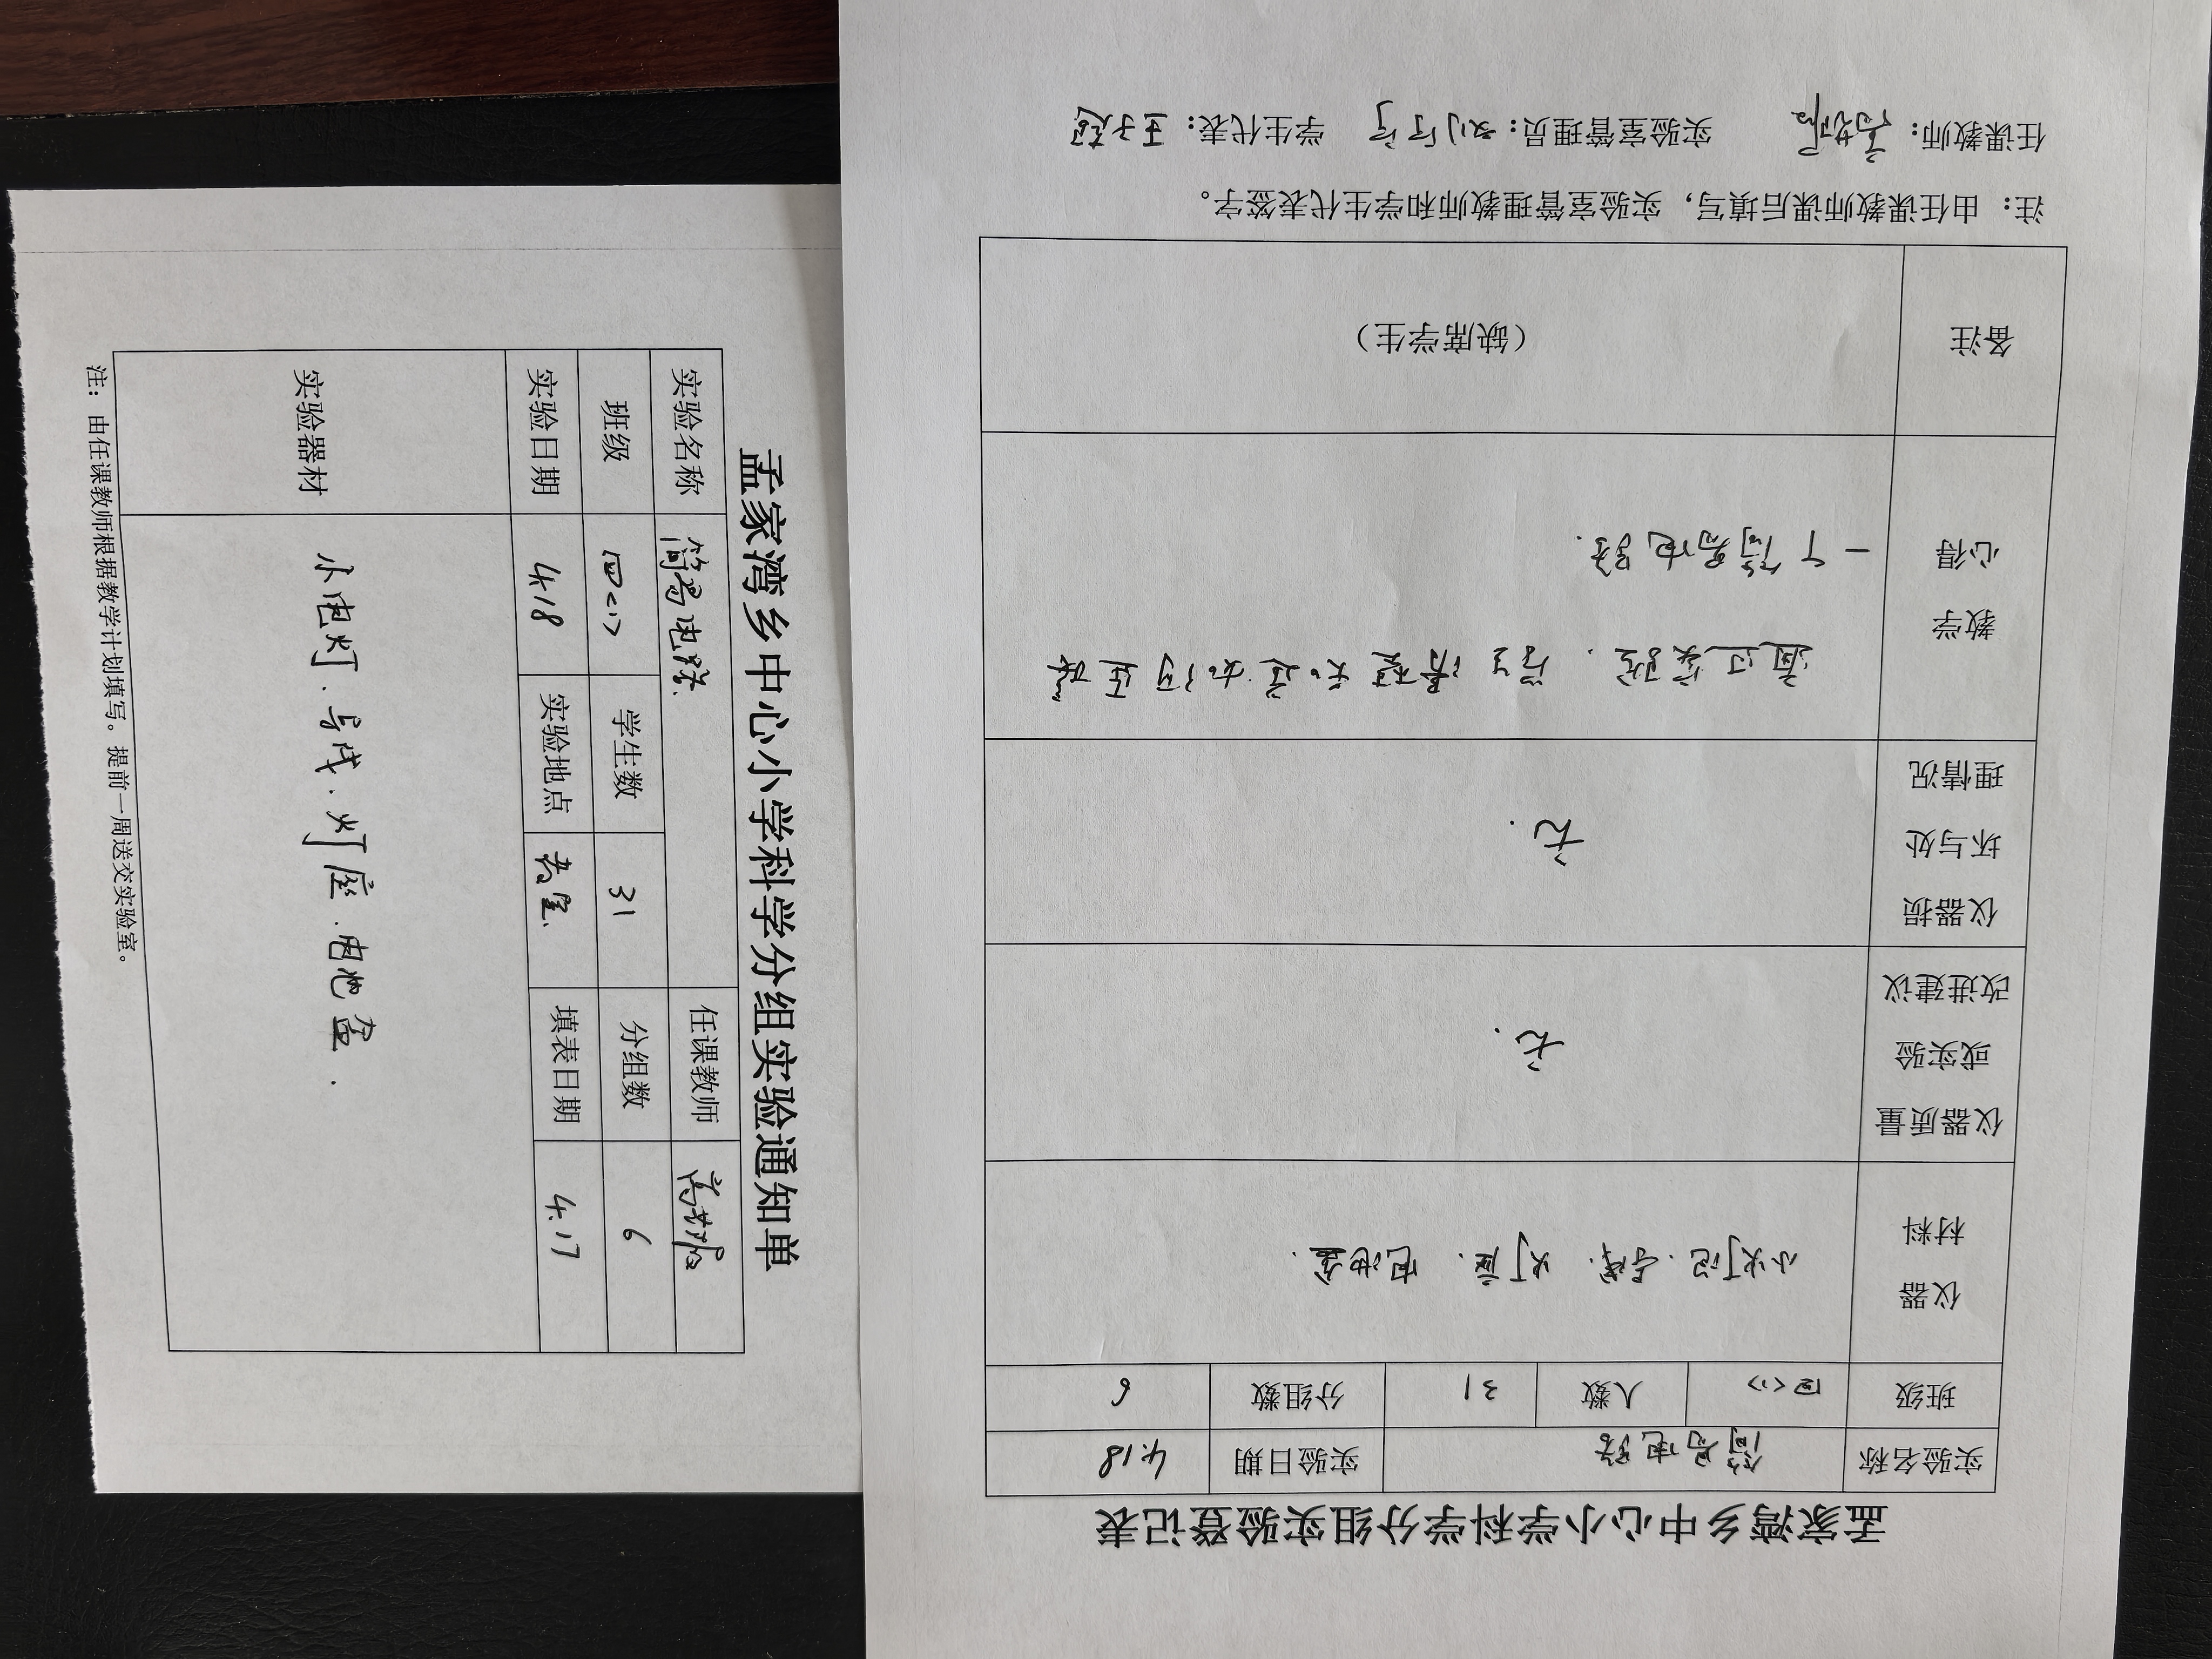 孟家湾乡中心小学科学分组实验通知单
实验名称 简易电路 任课教师
班级 四<1> 学生数 31 分组数 6
实验日期 4.18 实验地点 教室. 填表日期 4.17
实验器材 小电灯.导线.灯座.电池盒.
注：由任课教师根据教学计划填写。提前一周送交实验室。
孟家湾乡中心小学科学分组实验登记表
实验名称 简易电路 实验日期 4.18
班级 四<1> 人数 31 分组数 6
仪器
材料
小灯泡.导线.灯座.电池盒.
仪器质量
或实验
改进建议
无.
仪器损
坏与处
理情况
无.
教学
心得
通过实验.学生清楚知道如何连接
一个简易电路.
备注 （缺席学生）
注：由任课教师课后填写，实验室管理教师和学生代表签字。
任课教师： 实验室管理员： 学生代表：